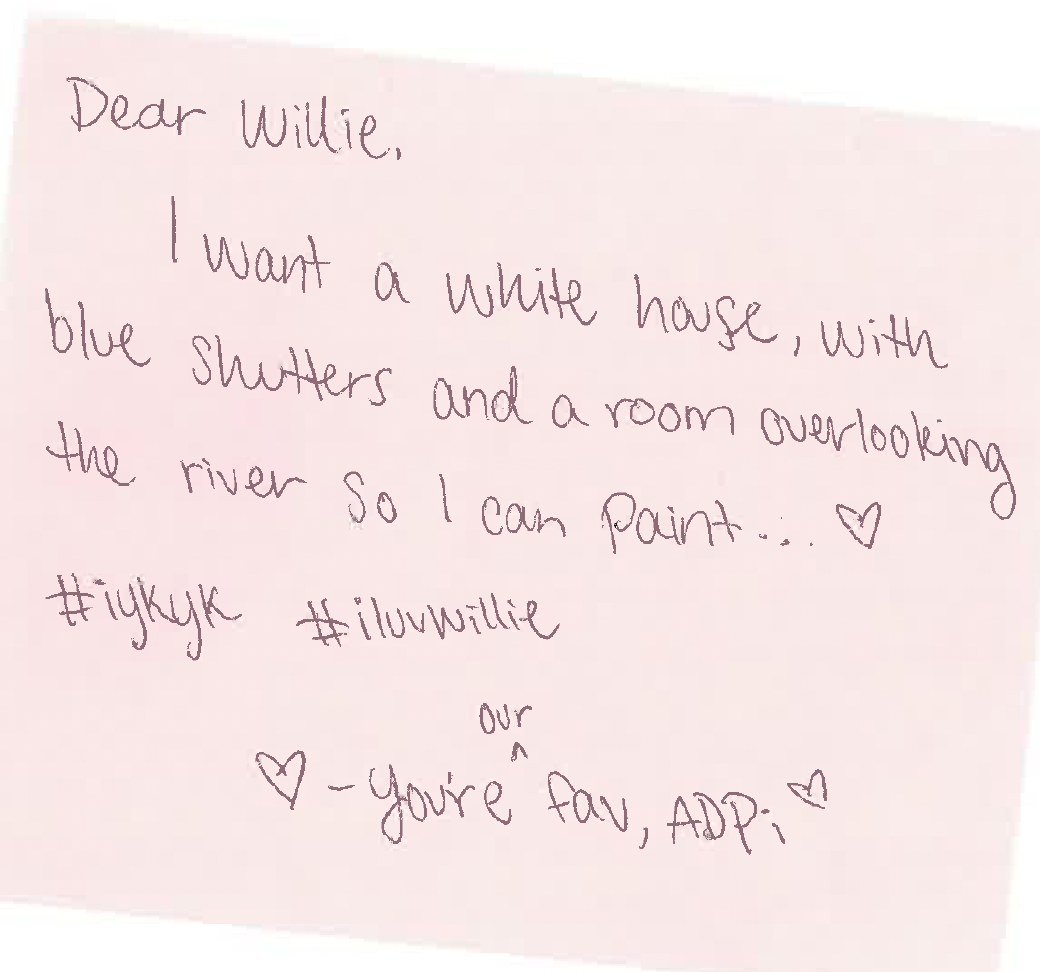 Dear Willie,
I want a white house, with
blue shutters and a room overlooking
the river so I can paint... ♡
#iykyk #iluvwillie
our
♡ - you're ^ fav, ADPi ♡